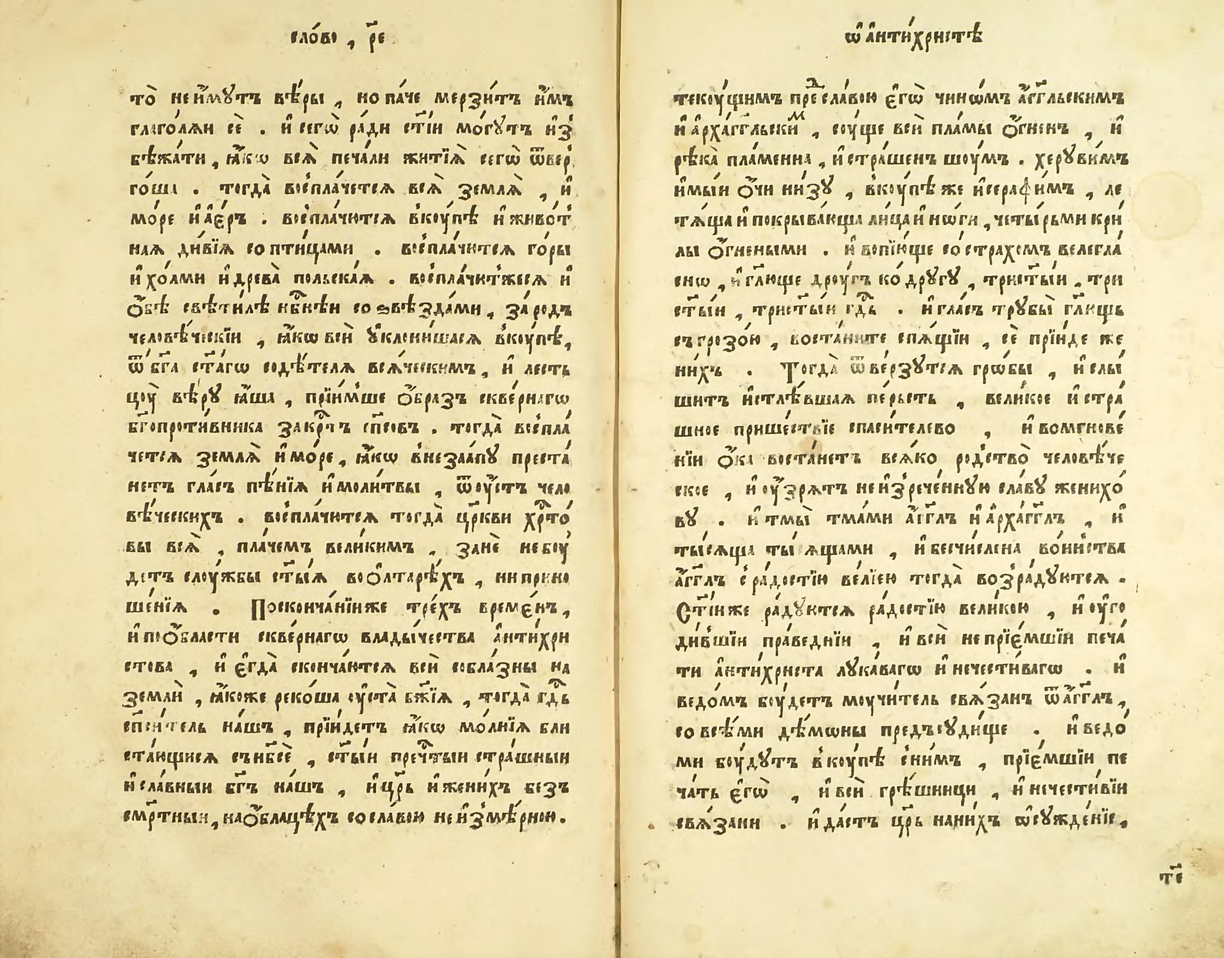 сло́во , р҃е
то̀ неи҆́мꙋтъ вѣ́ры , но паче мерзи́тъ и҆́мъ
глаго́лѧи сѐ . и҆ сегѡ̀ ра́ди ст҃і́и мо́гꙋтъ и҆з̾
бѣжа́ти , ꙗ҆́кѡ всѧ̀ печа́ли житїѧ̀ сегѡ̀ ѿвер
го́ша . тогда̀ воспла́четсѧ всѧ̀ землѧ̀ , и҆
мо́ре и҆ а҆е́ръ . воспла́чютсѧ вкꙋ́пѣ и҆ живо́т
наѧ ди́вїѧ со пти́цами . воспла́чютсѧ го́ры
и҆ хо́лми и҆ древа̀ по́льскаѧ . воспла́чютжесѧ и҆
ѻ҆́бѣ свѣти́лѣ нб҃нѣи со ѕвѣ́здами , за́ родъ
человѣ́ческїи , ꙗ҆́кѡ вси̑ ᲂу҆клони́шасѧ вкꙋ́пѣ ,
ѿ бг҃а ст҃а́гѡ содѣ́телѧ всѧ́ческимъ , и҆ лесть
цоу̀ вѣ́рꙋ ꙗ҆́ша , прїи́мше ѻ҆́бразъ скве́рнагѡ
бг҃опроти́вника за крⷭ҇тъ сп҃совъ . тогда̀ воспла́
четсѧ землѧ̀ и҆ мо́ре , ꙗ҆́кѡ внеза́апꙋ преста́
нетъ гла́съ пѣ́нїѧ и҆ моли́твы , ѿ оу҆́стъ чело
вѣ́ческихъ . воспла́чютсѧ тогда̀ цр҃кви хрⷭ҇то́
вы всѧ̀ , пла́чемъ вели́кимъ , занѐ не боу́
детъ слоу́жбы ст҃ы́ѧ во ѻ҆лтарѣ́хъ , ни прино
ше́нїѧ . По сконча́нїи же тре́хъ време́нъ ,
и҆ по ѻ҆́бласти скве́рнагѡ влады́чества а҆нти́хри
стова , и҆ є҆гда̀ сконча́ютсѧ вси̑ собла́зны на
землѝ , ꙗ҆́коже реко́ша оу҆ста̀ бж҃їѧ , тогда̀ гдⷭ҇ь
сп҃си́тель на́шъ , прїи́детъ ꙗ҆́кѡ мо́лнїѧ бли
ста́ющисѧ съ нб҃сѐ , ст҃ы́и преч҃тыи стра́шныи
и҆ сла́вныи бг҃ъ на́шъ , и҆ цр҃ь и҆ жени́хъ без̾
сме́ртныи , на ѻ҆́блацѣхъ со сла́вою неи҆змѣ́рною .
ѡ҆ а҆нти́христѣ
текоу́щимъ преⷣ сла́вою є҆гѡ̀ чинѡ́мъ а҆́гг҃льскимъ
и҆ а҆рха́гг҃льскиⷨ , соу́ще вси̑ пла́мы ѻ҆́гненъ , и҆
рѣка̀ пла́менна , и҆ стра́шенъ шоу́мъ . херꙋви́мъ
и҆мы́и ѻ҆́чи ни́зꙋ , вкоу́пѣ же и҆ серафи́мъ , ле
тѧ́ща и҆ покрыва́юща лица̀ и҆ но́ги , четы́рьми кри
лы ѻ҆́гнеными . и҆ вопїю́ще со стра́хомъ велегла́
сно , и҆ гл҃юще дроу́гъ ко дрꙋ́гꙋ , трист҃ы́и , три
ст҃ы́и , трист҃ы́и гдⷭ҇ь . и҆ гла́съ трꙋбы̀ гл҃ющь
съ грозо́ю , воста́ните спѧ́щїи , сѐ прїи́де же
ни́хъ . Тогда̀ ѿве́рзꙋтсѧ гро́бы , и҆ слы́
шитъ и҆стлѣ́вшаѧ пе́рьсть , вели́кое и҆ стра́
шное прише́ствїе спаси́телево , и҆ во мгнове́
нїи ѻ҆́ка воста́нетъ всѧ́ко родство̀ человѣ́че
ское , и҆ оу҆́зрѧтъ неизрече́ннꙋю сла́вꙋ женихо́
вꙋ . и҆ тмы̀ тма́ми а҆́гг҃лъ и҆ а҆рха́гг҃лъ , и҆
ты́сѧща ты́сѧщами , и҆ безчи́слена во́инства
а҆́гг҃лъ с ра́достїю ве́лїею тогда̀ возра́дꙋютсѧ .
Ст҃і́и же ра́дꙋютсѧ ра́достїю вели́кою , и҆ оу҆го
ди́вшїи пра́веднїи , и҆ вси̑ не прїе́мшїи печа́
ти а҆нти́христа лꙋка́вагѡ и҆ нечести́вагѡ . и҆
ведо́мъ боу́детъ моучи́тель свѧ́занъ ѿ а҆́гг҃лъ ,
со всѣ́ми де́мѡны предъ соуди́ще . и҆ ведо́
ми боу́дꙋтъ вкоу́пѣ с ни́мъ , прїе́мшїи пе
ча́ть є҆гѡ̀ , и҆ вси̑ грѣ́шницы , и҆ нечести́вїи
свѧ́зани . и҆ да́стъ цр҃ь на ни́хъ ѡ҆сꙋжде́нїе ,
те҃